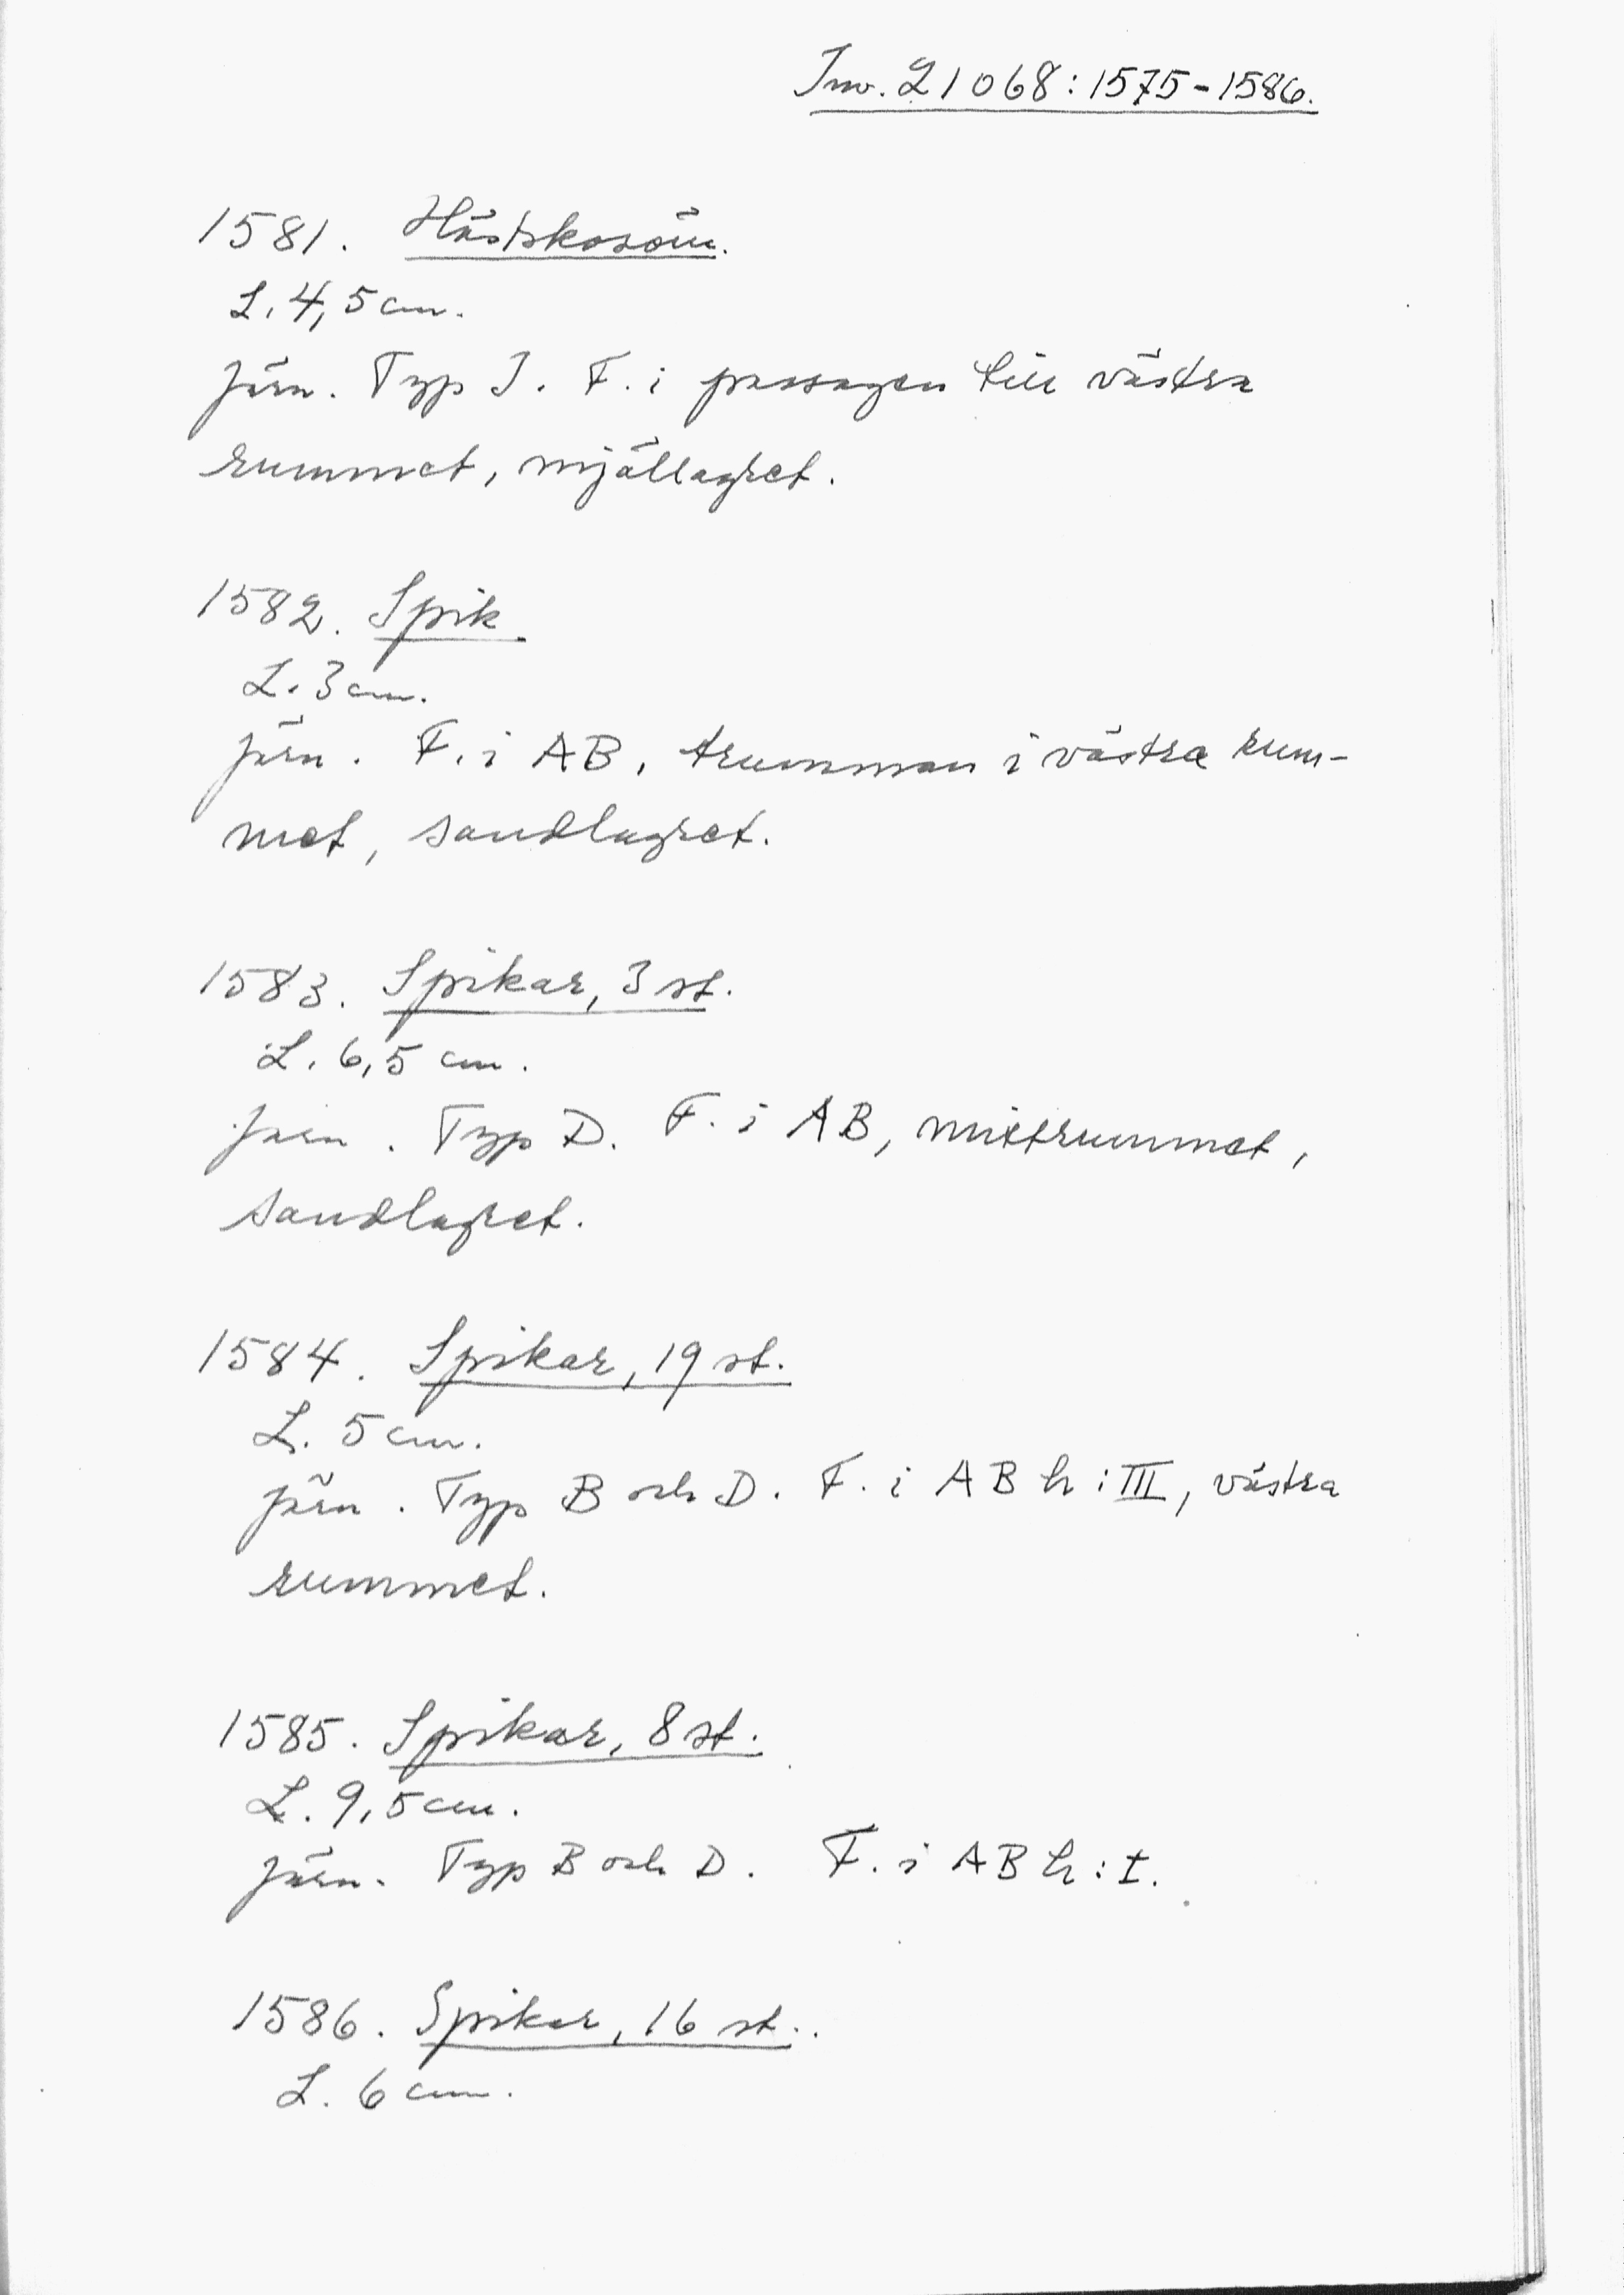 Inv. 21068:1575-1586.
1581. Hästskosöm.
L. 4,5 cm.
Järn. Typ I. F. i passagen till västra
rummet, mjällagret.
1582. Spik
L. 3 cm.
Järn. F. i AB, trumman i västra rum-
met, sandlagret.
1583. Spikar, 3 st.
L. 6,5 cm.
Järn. Typ D. F. i AB, mittrummet,
sandlagret.
1584. Spikar, 19 st.
L. 5 cm.
Järn. Typ B och D. F. i AB h: III, västra
rummet.
1585. Spikar, 8 st.
L. 9,5 cm.
Järn. Typ B och D. F. i AB h: I.
1586. Spikar, 16 st.
L. 6 cm.